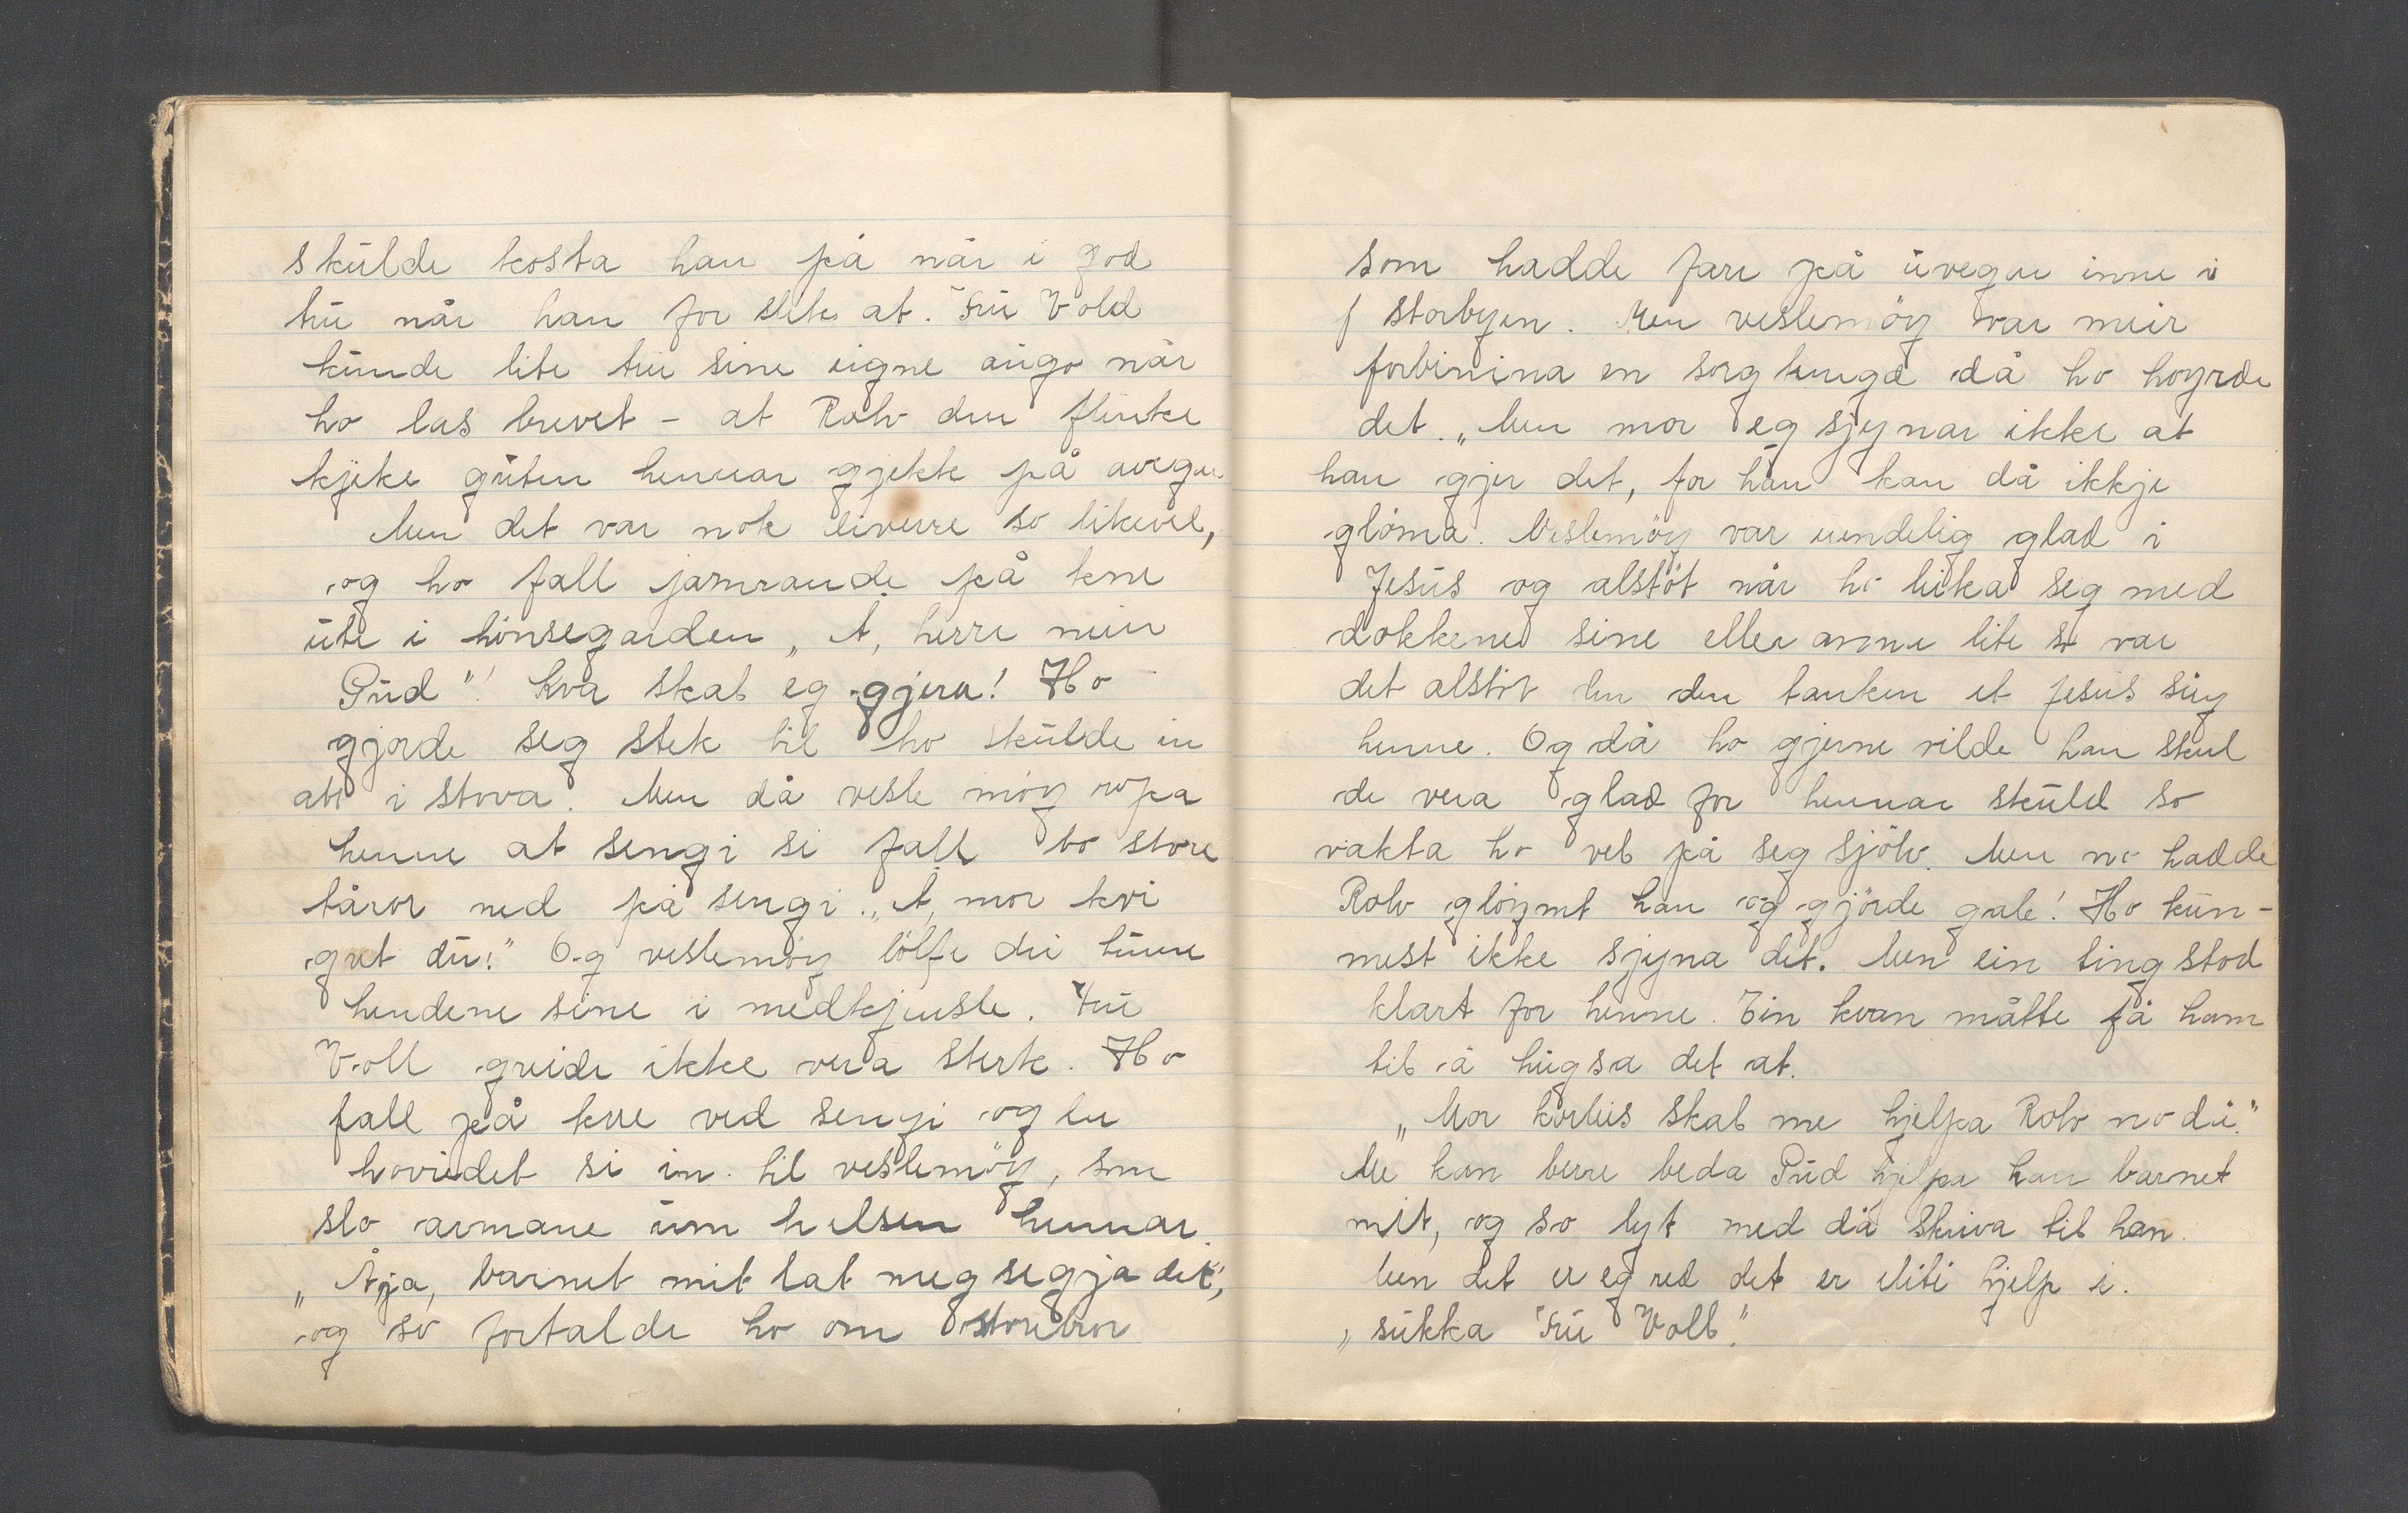 skulde kosta han på når i god
tru når han for slik at. Fru Vold
kunde lite tru sine eigne augo når
ho las brevet - at Rolv den flinke
kjeke guten hennar gjekk på avegar.
Men det var nok diverre so likevel,
og ho fall jamrande på kne
ute i hønsegarden „Å, herre min
Gud"! Kva skal eg gjera! Ho
gjorde seg sterk til ho skulde in
att i stova. Men då vesle möy ropa
henne at sengi si fall to store
tåror ned på sengi. „Å, mor kvi
gret du!" Og veslemöy lölfte dei tunne
hendene sine i medkjensle. Fru
Voll greide ikke vera sterk. Ho
fall på kne ved sengi og la
hovudet si in til veslemöy, som
slo armane um halsen hennar.
„Åja, barnet mit lat meg segja det",
og so fortalde ho om storebror
som hadde fare på uvegar inne i
storbyen. Men veslemöy var meir
forbinina en sorgtungd då ho hoyrde
det. „Men mor eg sjynar ikke at
han gjer det, for han kan då ikkje
glöma. Veslemöy var uendelig glad i
Jesus og alstöt når ho leika seg med
dokkene sine eller anna lite so var
det alstöt den den tanken at Jesus såg
henne. Og då ho gjerne vilde han skul
de vera glad for hennar skuld so
vakta ho vel på seg sjölv. Men no hadde
Rolv glöymt han og gjörde gale! Ho kun-
mest ikke sjyna det. Men ein ting stod
klart for henne. Ein kvan måtte få ham
til å hugsa det at.
„Mor korleis skal me hjelpa Rolv no då."
Me kan berre beda Gud hjelpa han barnet
mit, og so lyt med då skriva til han.
Men det er eg red det er liti hjelp i.
„sukka Fru Voll."